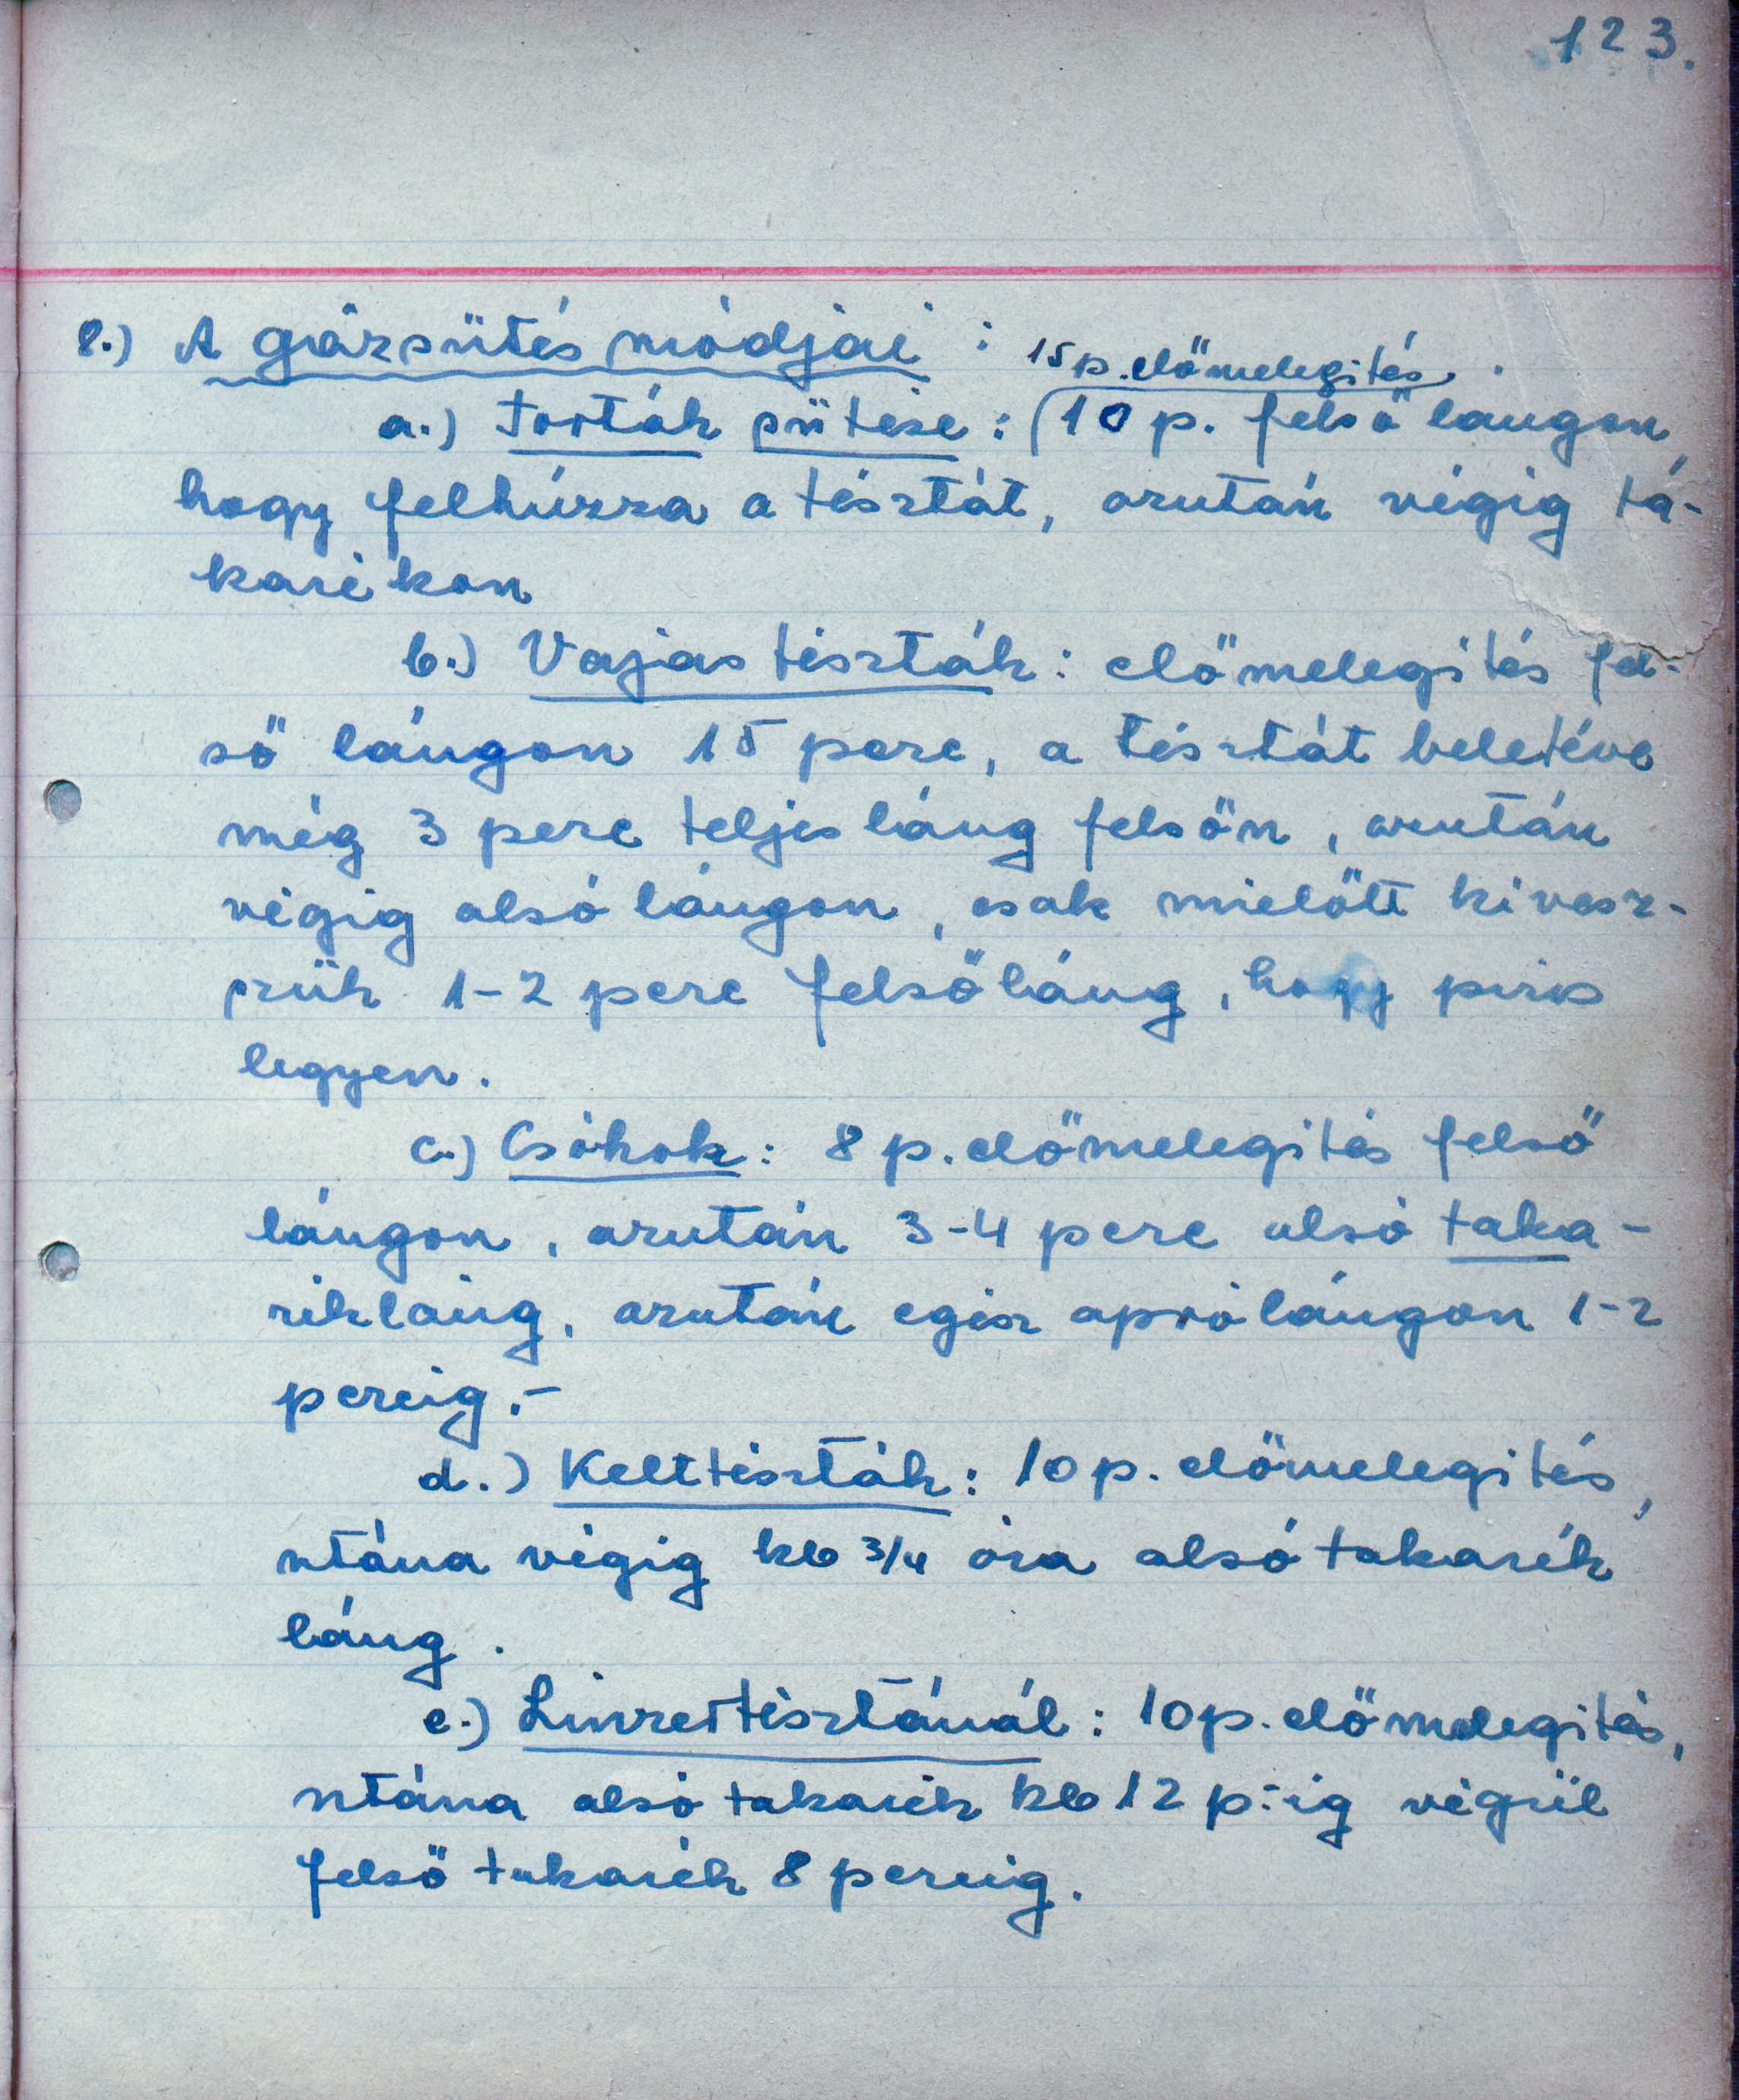 123.
8.) A gázsütés módjai :
15 p. előmelegítés
a.) Torták sütése : (10 p. felső langon,
hogy felhúzza a tésztát, azután végig ta-
karékon
b.) Vajas tészták : előmelegítés fel-
ső lángon 15 perc, a tésztát beletéve
még 3 perc teljes láng felsőn, azután
végig alsó lángon, csak mielőtt kivesz-
szük 1-2 perc felsőláng, hogy piros
legyen.
c.) Csókok : 8 p. előmelegítés felső
lángon, azután 3-4 perc alsó taka-
rékláng, azután egész aprólángon 1-2
percig.-
d.) Kelttészták : 10 p. előmelegítés,
utána végig kb 3/4 óra alsó takarék
láng.
e.) Linzertésztánál : 10 p. előmelegítés,
utána alsó takarék kb 12 p.-ig végül
felső takarék 8 percig.